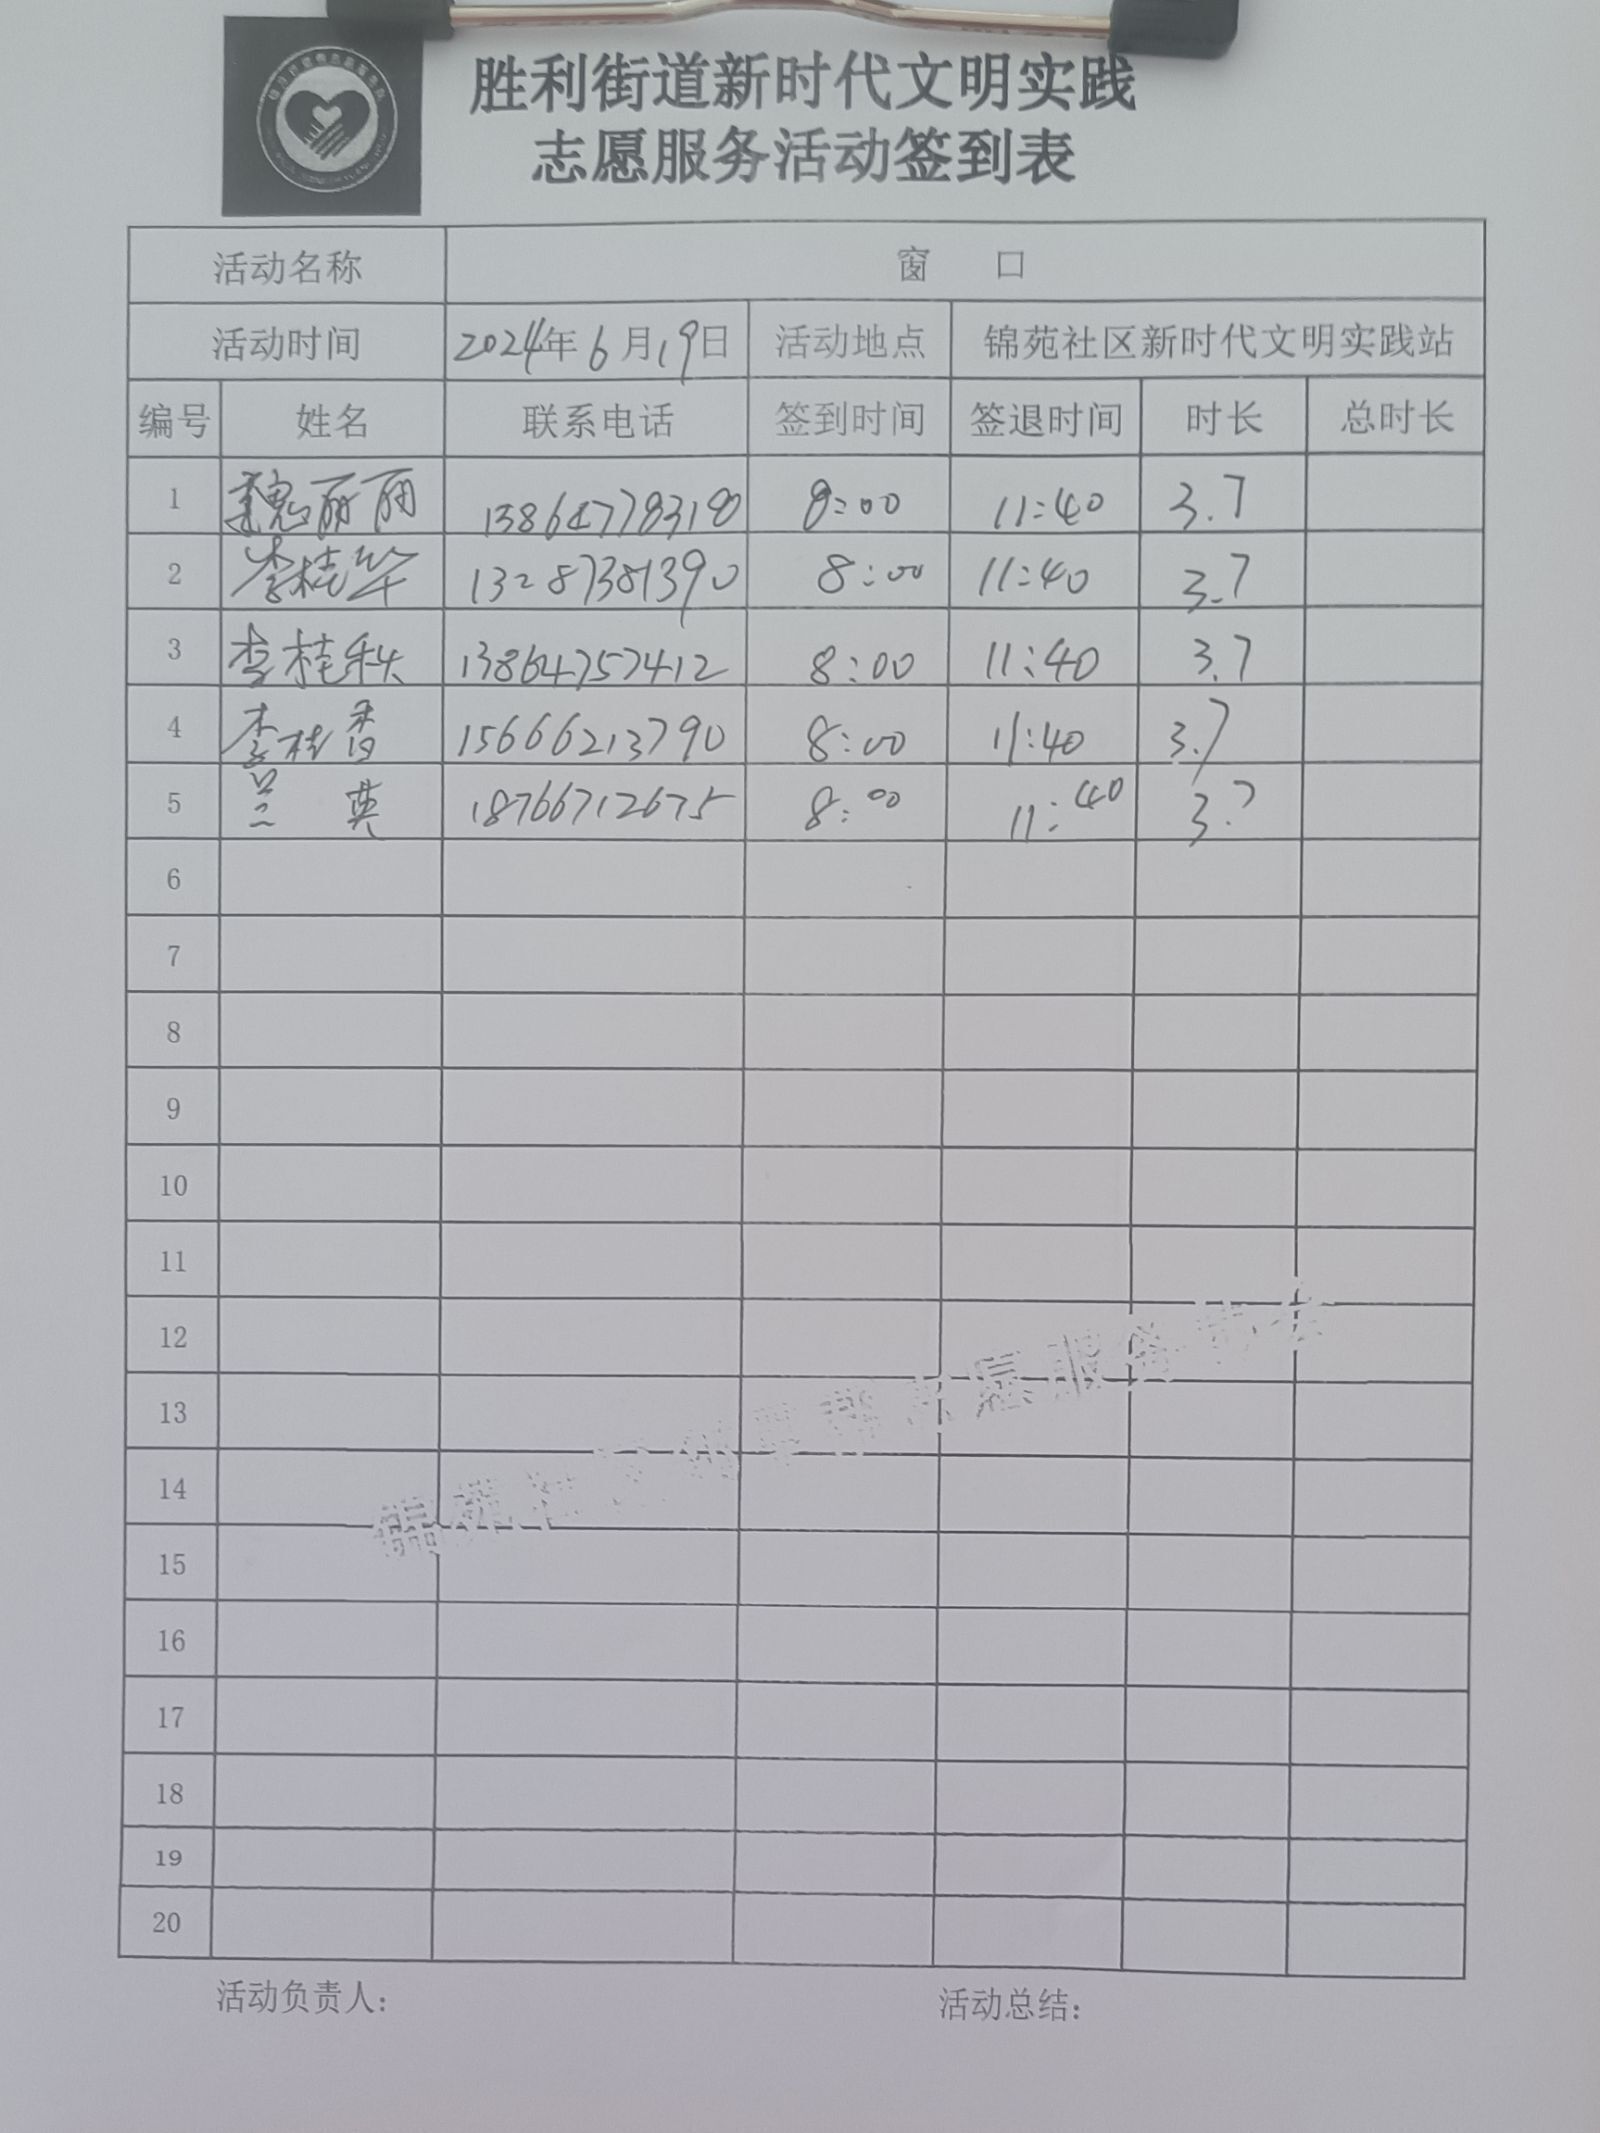 胜利街道新时代文明实践
志愿服务活动签到表
活动名称 窗 口
活动时间 2024年6月19日 活动地点 锦苑社区新时代文明实践站
编号 姓名 联系电话 签到时间 签退时间 时长 总时长
1 魏丽丽 13864778318 8:00 11:40 3.7
2 李桂华 13287381390 8:00 11:40 3.7
3 李桂秋 13864757412 8:00 11:40 3.7
4 李桂香 15666213790 8:00 11:40 3.7
5 兰英 18766712675 8:00 11:40 3.7
6
7
8
9
10
11
12
13
14
15
16
17
18
19
20
志愿服务
活动负责人: 活动总结: